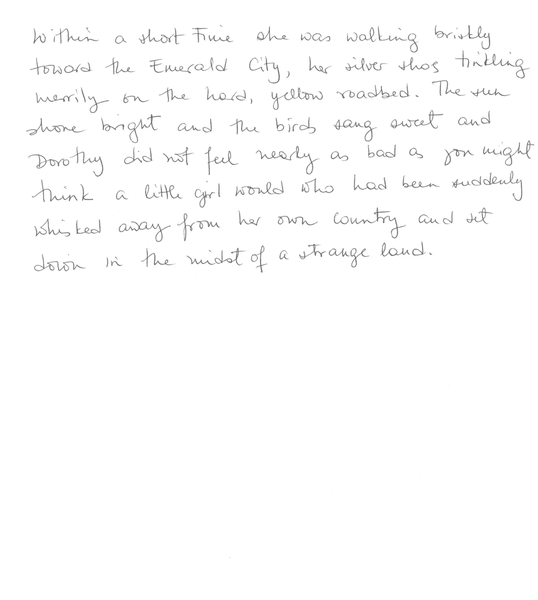 Within a short time she was walking briskly
toward the Emerald City, her silver shos tinkling
merrily on the hard, yellow roadbed. The sun
shone bright and the birds sang sweet and
Dorothy did not feel nearly as bad as you might
think a little girl would who had been suddenly
whisked away from her own country and set
down in the midst of a strange land.